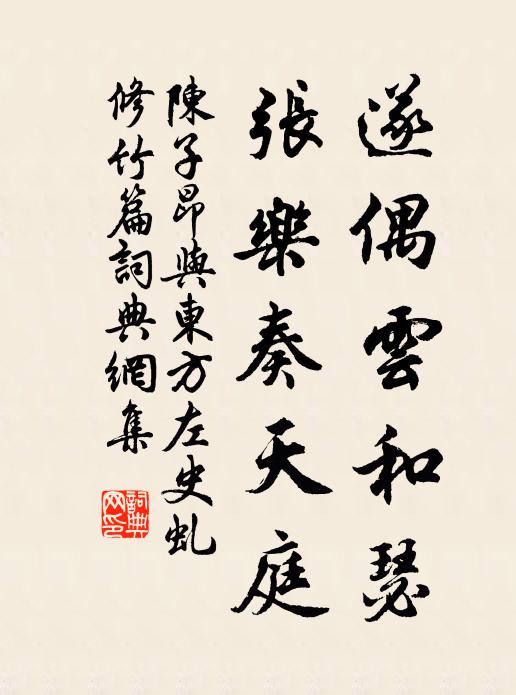 遂偶雲和瑟
張樂奏天庭
陳子昂與東方左史虬
修竹篇詞典網集
詞典
网印